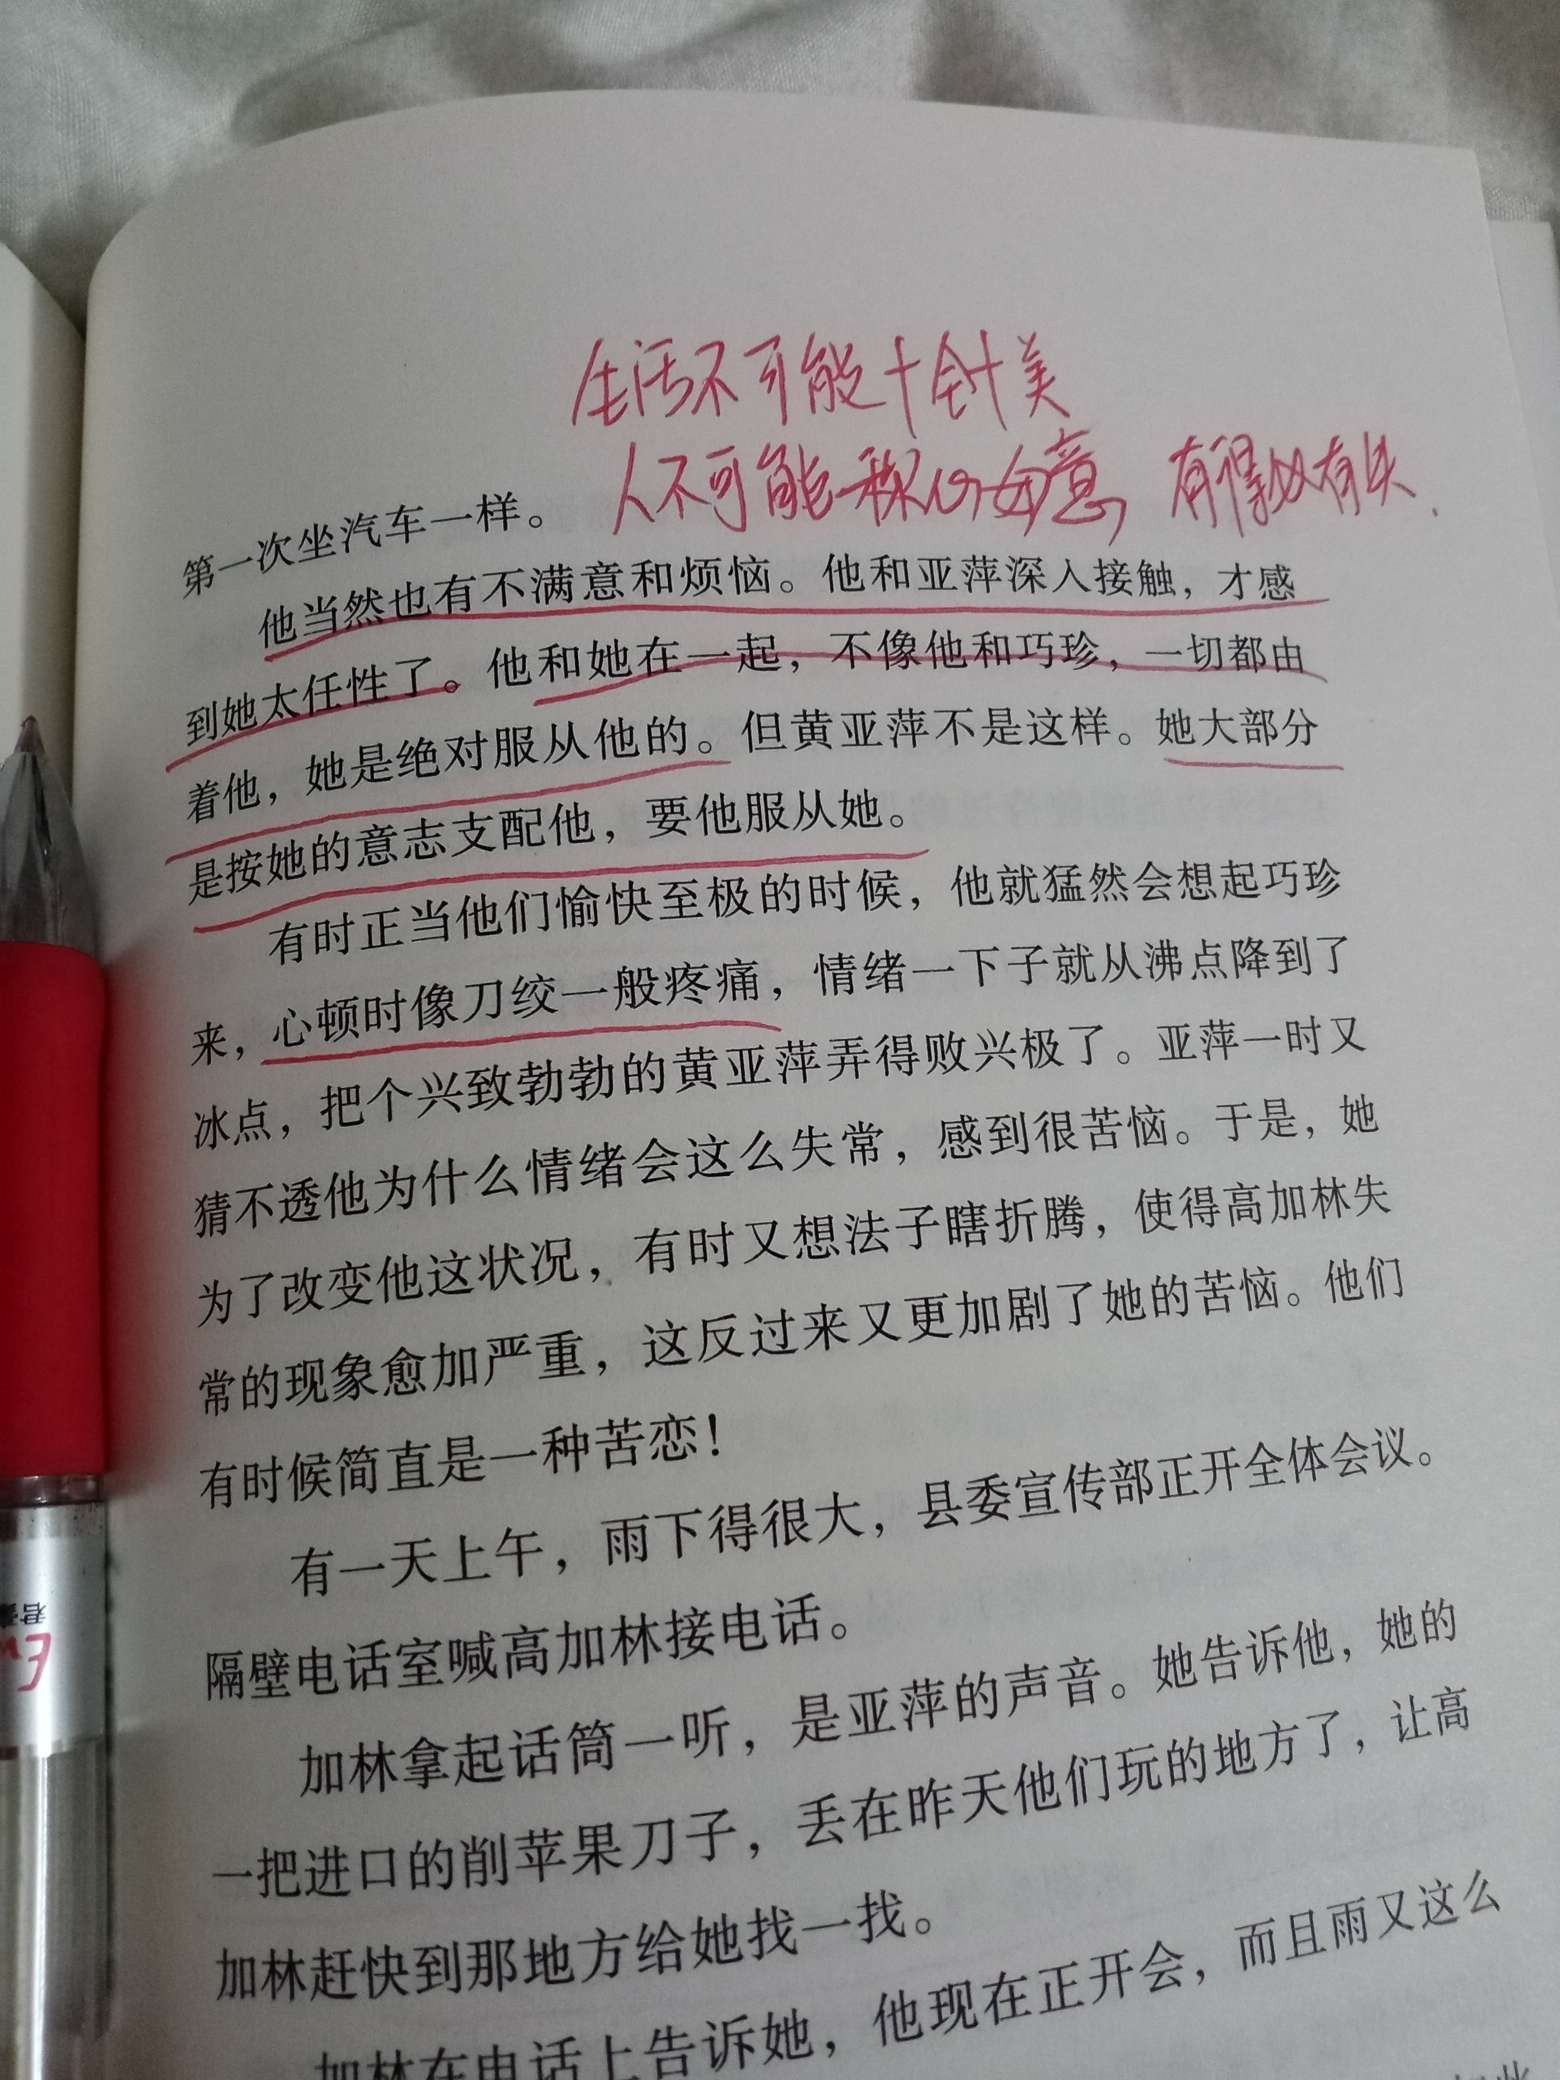 生活不可能十全十美
人不可能称心如意 有得必有失.
第一次坐汽车一样。
他当然也有不满意和烦恼。他和亚萍深入接触，才感
到她太任性了。他和她在一起，不像他和巧珍，一切都由
着他，她是绝对服从他的。但黄亚萍不是这样。她大部分
是按她的意志支配他，要他服从她。
有时正当他们愉快至极的时候，他就猛然会想起巧珍
来，心顿时像刀绞一般疼痛，情绪一下子就从沸点降到了
冰点，把个兴致勃勃的黄亚萍弄得败兴极了。亚萍一时又
猜不透他为什么情绪会这么失常，感到很苦恼。于是，她
为了改变他这状况，有时又想法子瞎折腾，使得高加林失
常的现象愈加严重，这反过来又更加剧了她的苦恼。他们
有时候简直是一种苦恋！
有一天上午，雨下得很大，县委宣传部正开全体会议。
隔壁电话室喊高加林接电话。
加林拿起话筒一听，是亚萍的声音。她告诉他，她的
一把进口的削苹果刀子，丢在昨天他们玩的地方了，让高
加林赶快到那地方给她找一找。
加林在电话上告诉她，他现在正开会，而且雨又这么